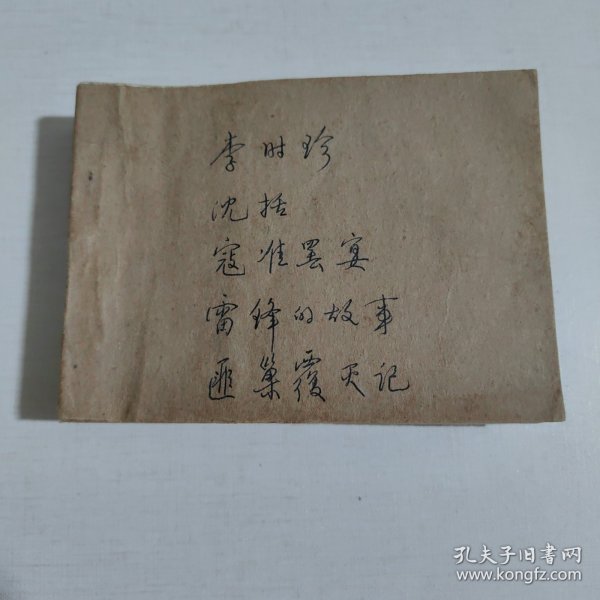 李时珍
沈括
寇准罢宴
雷锋的故事
匪巢覆灭记
孔夫子旧书网
www.kongfz.com